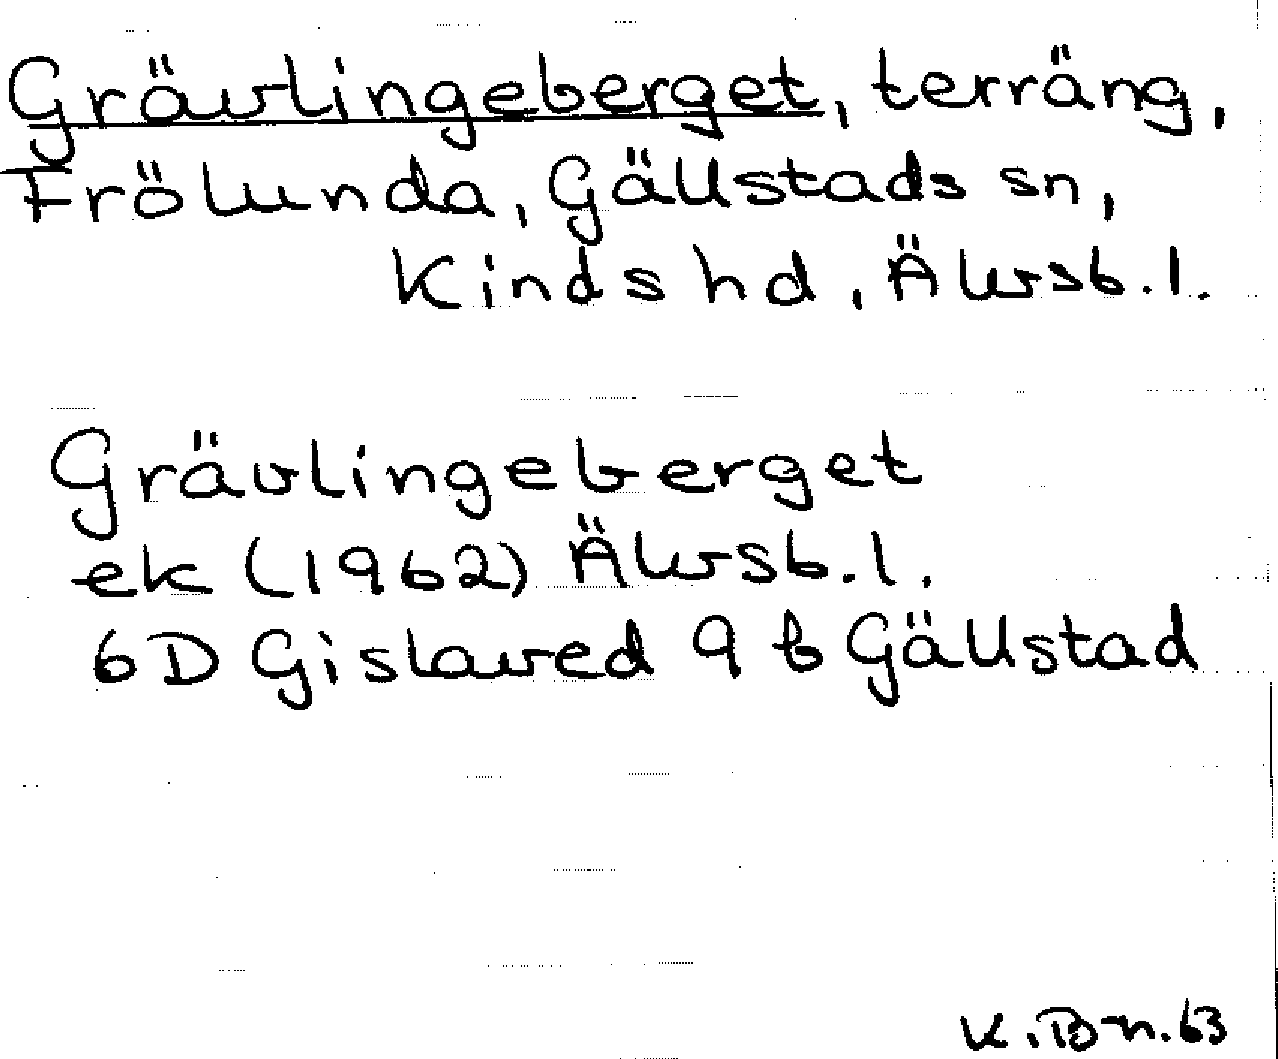 Grävlingeberget, terräng,
Frölunda, Gällstads sn,
Kinds hd, Älvsb. l.
Grävlingeberget
ek (1962) Älvsb. l.
6D Gislaved 9 b Gällstad
K. Bn. 63